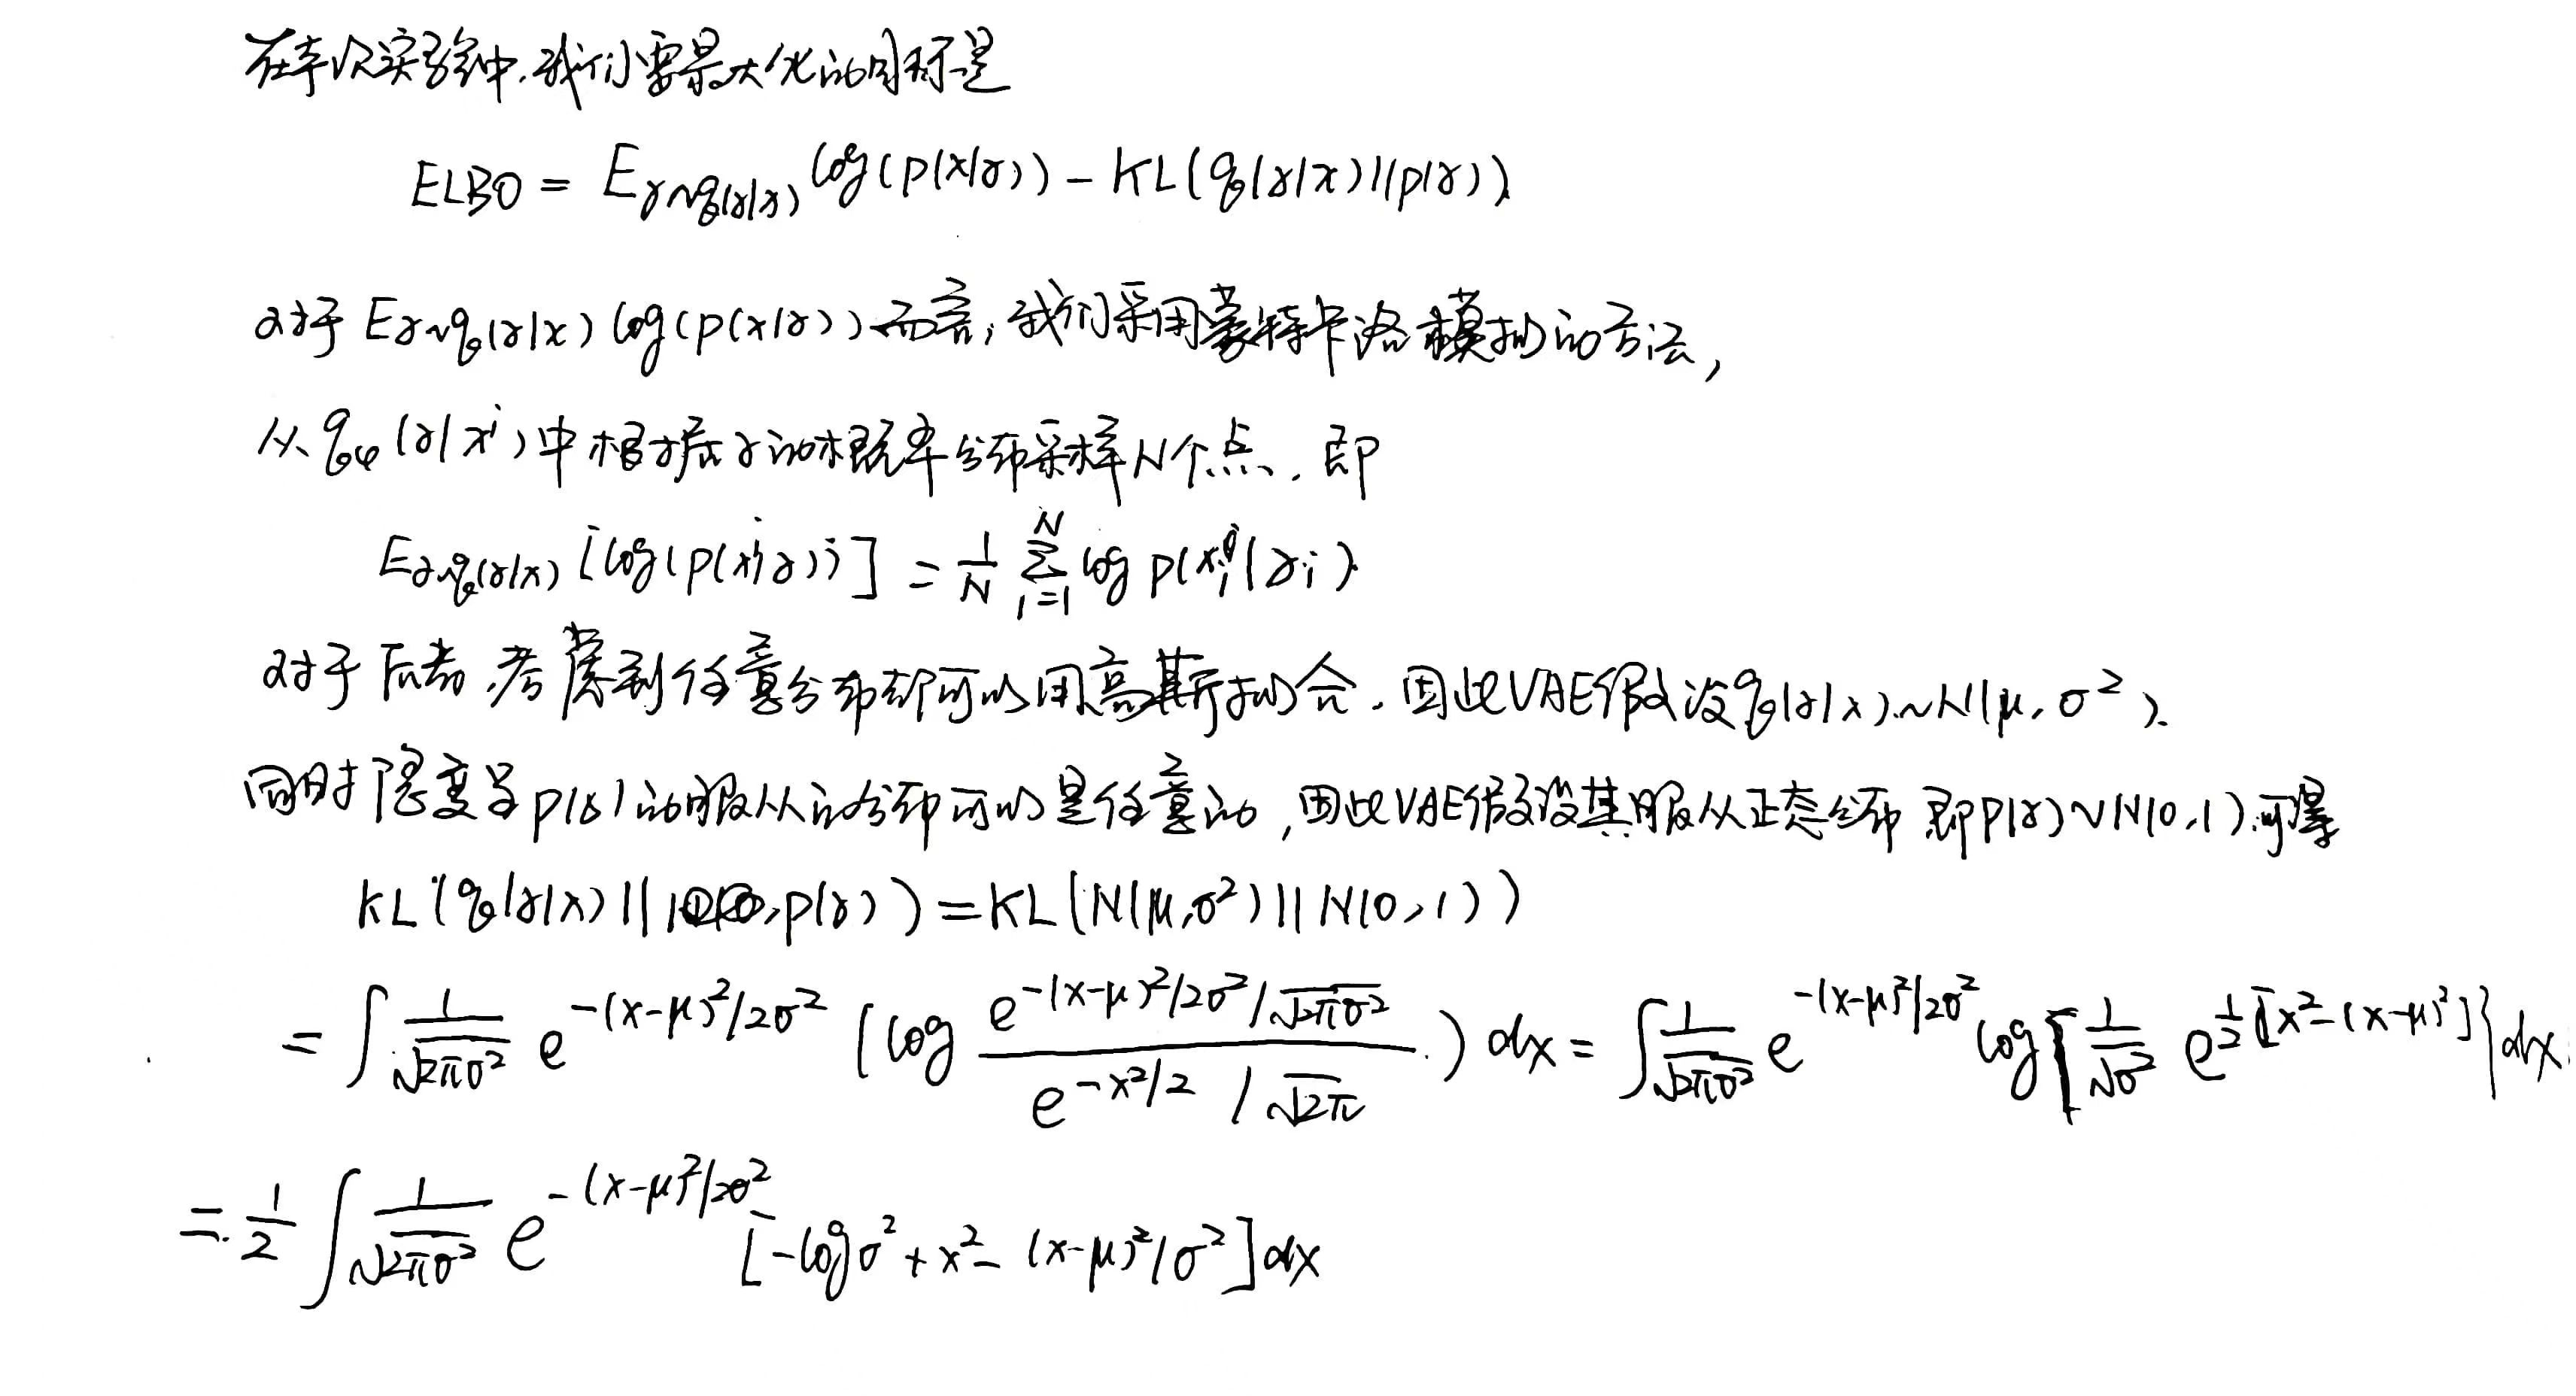 在本次实验中,我们要最大化的目标是
ELBO = E_{z~q(z|x)} log(p(x|z)) - KL(q(z|x)||p(z))
对于 E_{z~q(z|x)} log(p(x|z)) 而言, 我们采用蒙特卡洛模拟的方法,
从 q_φ(z|x^i) 中根据z的概率分布采样N个点, 即
E_{z~q(z|x)} [log(p(x^i|z))] = 1/N Σ_{i=1}^{N} log p(x_i|z_i)
对于后者,考虑到任意分布都可以用高斯拟合, 因此VAE假设q(z|x)~N(μ,σ²).
同时隐变量p(z)的服从的分布可以是任意的,因此VAE假设其服从正态分布 即P(z)~N(0,1),可得
KL(q(z|x)||p(z)) = KL(N(μ,σ²)||N(0,1))
= ∫ 1/√(2πσ²) e^{-(x-μ)²/2σ²} (log (e^{-(x-μ)²/2σ²}/√(2πσ²))/(e^{-x²/2}/√(2π))) dx = ∫ 1/√(2πσ²) e^{-(x-μ)²/2σ²} log{1/√σ² e^{1/2[x²-(x-μ)²]}}dx
= 1/2 ∫ 1/√(2πσ²) e^{-(x-μ)²/2σ²} [-logσ² + x² - (x-μ)²/σ²]dx